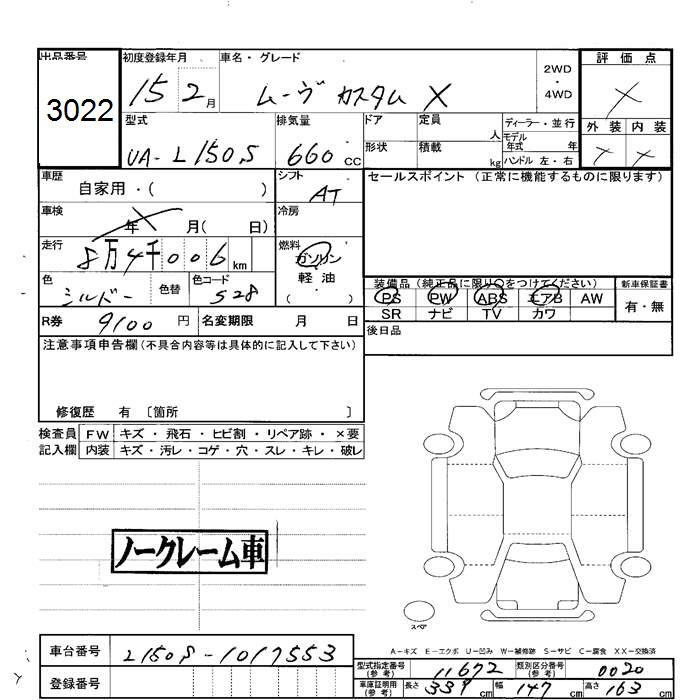 出品番号 初度登録年月 車名・グレード 2WD・4WD 評価点
3022 15 2月 ムーヴ カスタム X X
型式 排気量 ドア 定員 人 ディーラー・並行 外装 内装
UA-L150S 660 CC 形状 積載 kg モデル年式 年 ハンドル 左・右 X X
車歴 自家用・( ) シフト AT セールスポイント(正常に機能するものに限ります)
車検 年 月( 日) 冷房
走行 8万4千006 km 燃料 ガソリン
軽油
( )
色 シルバー 色替 色コード S28
装備品(純正品に限り○をつけてください) 新車保証書
PS PW ABS エアB AW 有・無
SR ナビ TV カワ
R券 9100円 名変期限 月 日
後日品
注意事項申告欄(不具合内容等は具体的に記入して下さい)
修復歴 有〔箇所 〕
検査員 FW キズ・飛石・ヒビ割・リペア跡・×要
記入欄 内装 キズ・汚レ・コゲ・穴・スレ・キレ・破レ
ノークレーム車
スペア
A-キズ E-エクボ U-凹み W-補修跡 S-サビ C-腐食 XX-交換済
車台番号 L150S-1017553
登録番号
型式指定番号(参考) 11672 類別区分番号(参考) 0020
車庫証明用(参考) 長さ 339 cm 幅 147 cm 高さ 163 cm